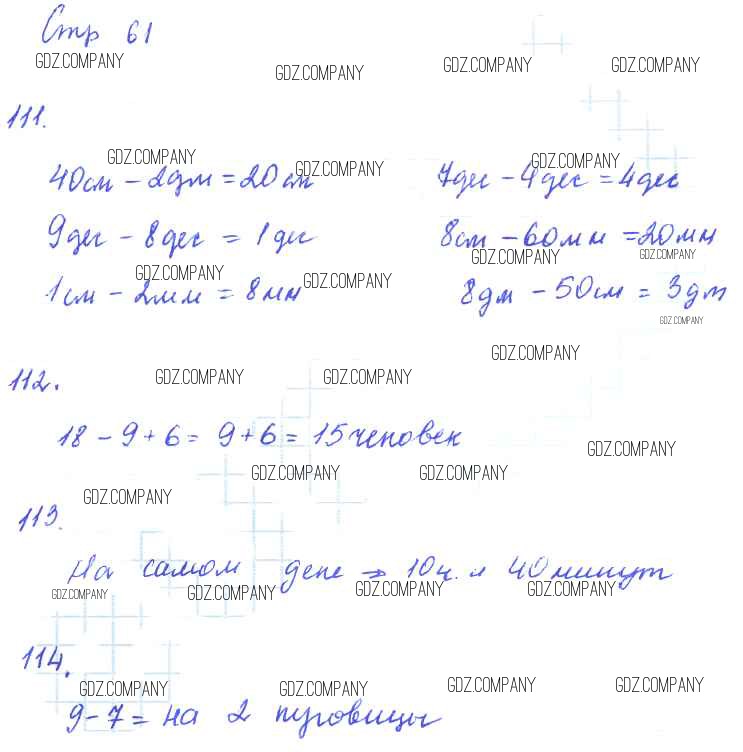 Стр 61
GDZ.COMPANY GDZ.COMPANY GDZ.COMPANY GDZ.COMPANY
111.
GDZ.COMPANY GDZ.COMPANY GDZ.COMPANY
40см - 2дм = 20см 7дес - 4дес = 4дес
9дес - 8дес = 1дес 8см - 60мм = 20мм
GDZ.COMPANY GDZ.COMPANY GDZ.COMPANY GDZ.COMPANY
1см - 2мм = 8мм 8дм - 50см = 3дм
GDZ.COMPANY
GDZ.COMPANY
112. GDZ.COMPANY GDZ.COMPANY
18 - 9 + 6 = 9 + 6 = 15 человек
GDZ.COMPANY
GDZ.COMPANY GDZ.COMPANY
GDZ.COMPANY
113.
На самом деле → 10ч. и 40 минут
GDZ.COMPANY GDZ.COMPANY GDZ.COMPANY GDZ.COMPANY
114.
GDZ.COMPANY GDZ.COMPANY GDZ.COMPANY GDZ.COMPANY
9 - 7 = на 2 пуговицы